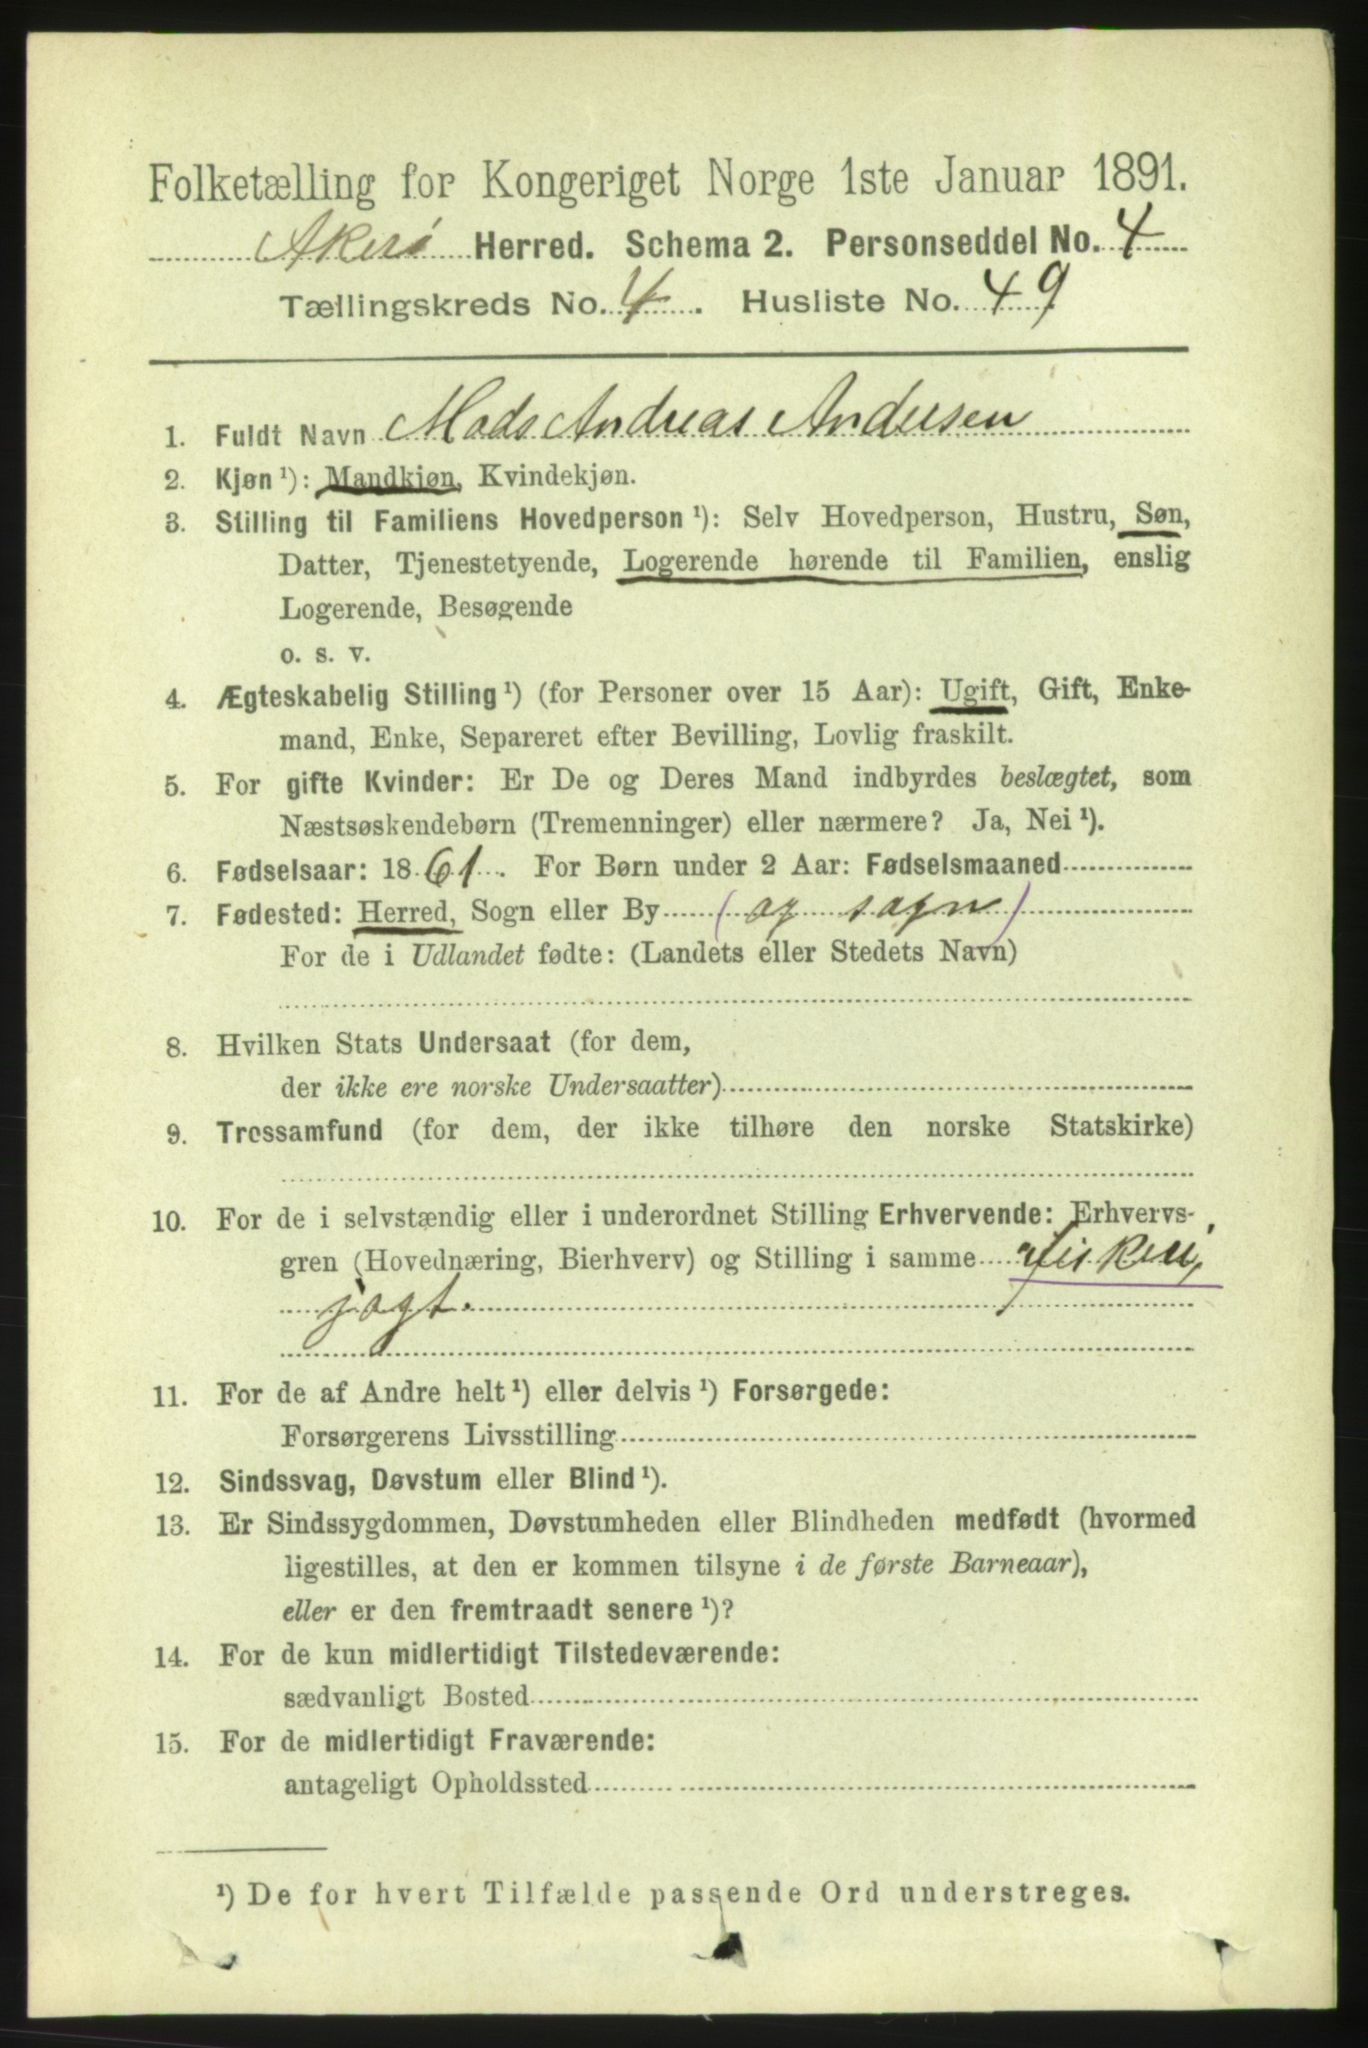 Folketælling for Kongeriget Norge 1ste Januar 1891.
Akerø Herred. Schema 2. Personseddel No. 4
Tællingskreds No. 4. Husliste No. 49
1. Fuldt Navn Mads Andreas Andersen
2. Kjøn ¹): Mandkjøn, Kvindekjøn.
3. Stilling til Familiens Hovedperson ¹): Selv Hovedperson, Hustru, Søn,
Datter, Tjenestetyende, Logerende hørende til Familien, enslig
Logerende, Besøgende
o. s. v.
4. Ægteskabelig Stilling ¹) (for Personer over 15 Aar): Ugift, Gift, Enke-
mand, Enke, Separeret efter Bevilling, Lovlig fraskilt.
5. For gifte Kvinder: Er De og Deres Mand indbyrdes beslægtet, som
Næstsøskendebørn (Tremenninger) eller nærmere? Ja, Nei ¹).
6. Fødselsaar: 1861. For Børn under 2 Aar: Fødselsmaaned
7. Fødested: Herred, Sogn eller By (og sogn)
For de i Udlandet fødte: (Landets eller Stedets Navn)
8. Hvilken Stats Undersaat (for dem,
der ikke ere norske Undersaatter)
9. Trossamfund (for dem, der ikke tilhøre den norske Statskirke)
10. For de i selvstændig eller i underordnet Stilling Erhvervende: Erhvervs-
gren (Hovednæring, Bierhverv) og Stilling i samme fiskeri,
jagt.
11. For de af Andre helt ¹) eller delvis ¹) Forsørgede:
Forsørgerens Livsstilling
12. Sindssvag, Døvstum eller Blind ¹).
13. Er Sindssygdommen, Døvstumheden eller Blindheden medfødt (hvormed
ligestilles, at den er kommen tilsyne i de første Barneaar),
eller er den fremtraadt senere ¹)?
14. For de kun midlertidigt Tilstedeværende:
sædvanligt Bosted
15. For de midlertidigt Fraværende:
antageligt Opholdssted
¹) De for hvert Tilfælde passende Ord understreges.